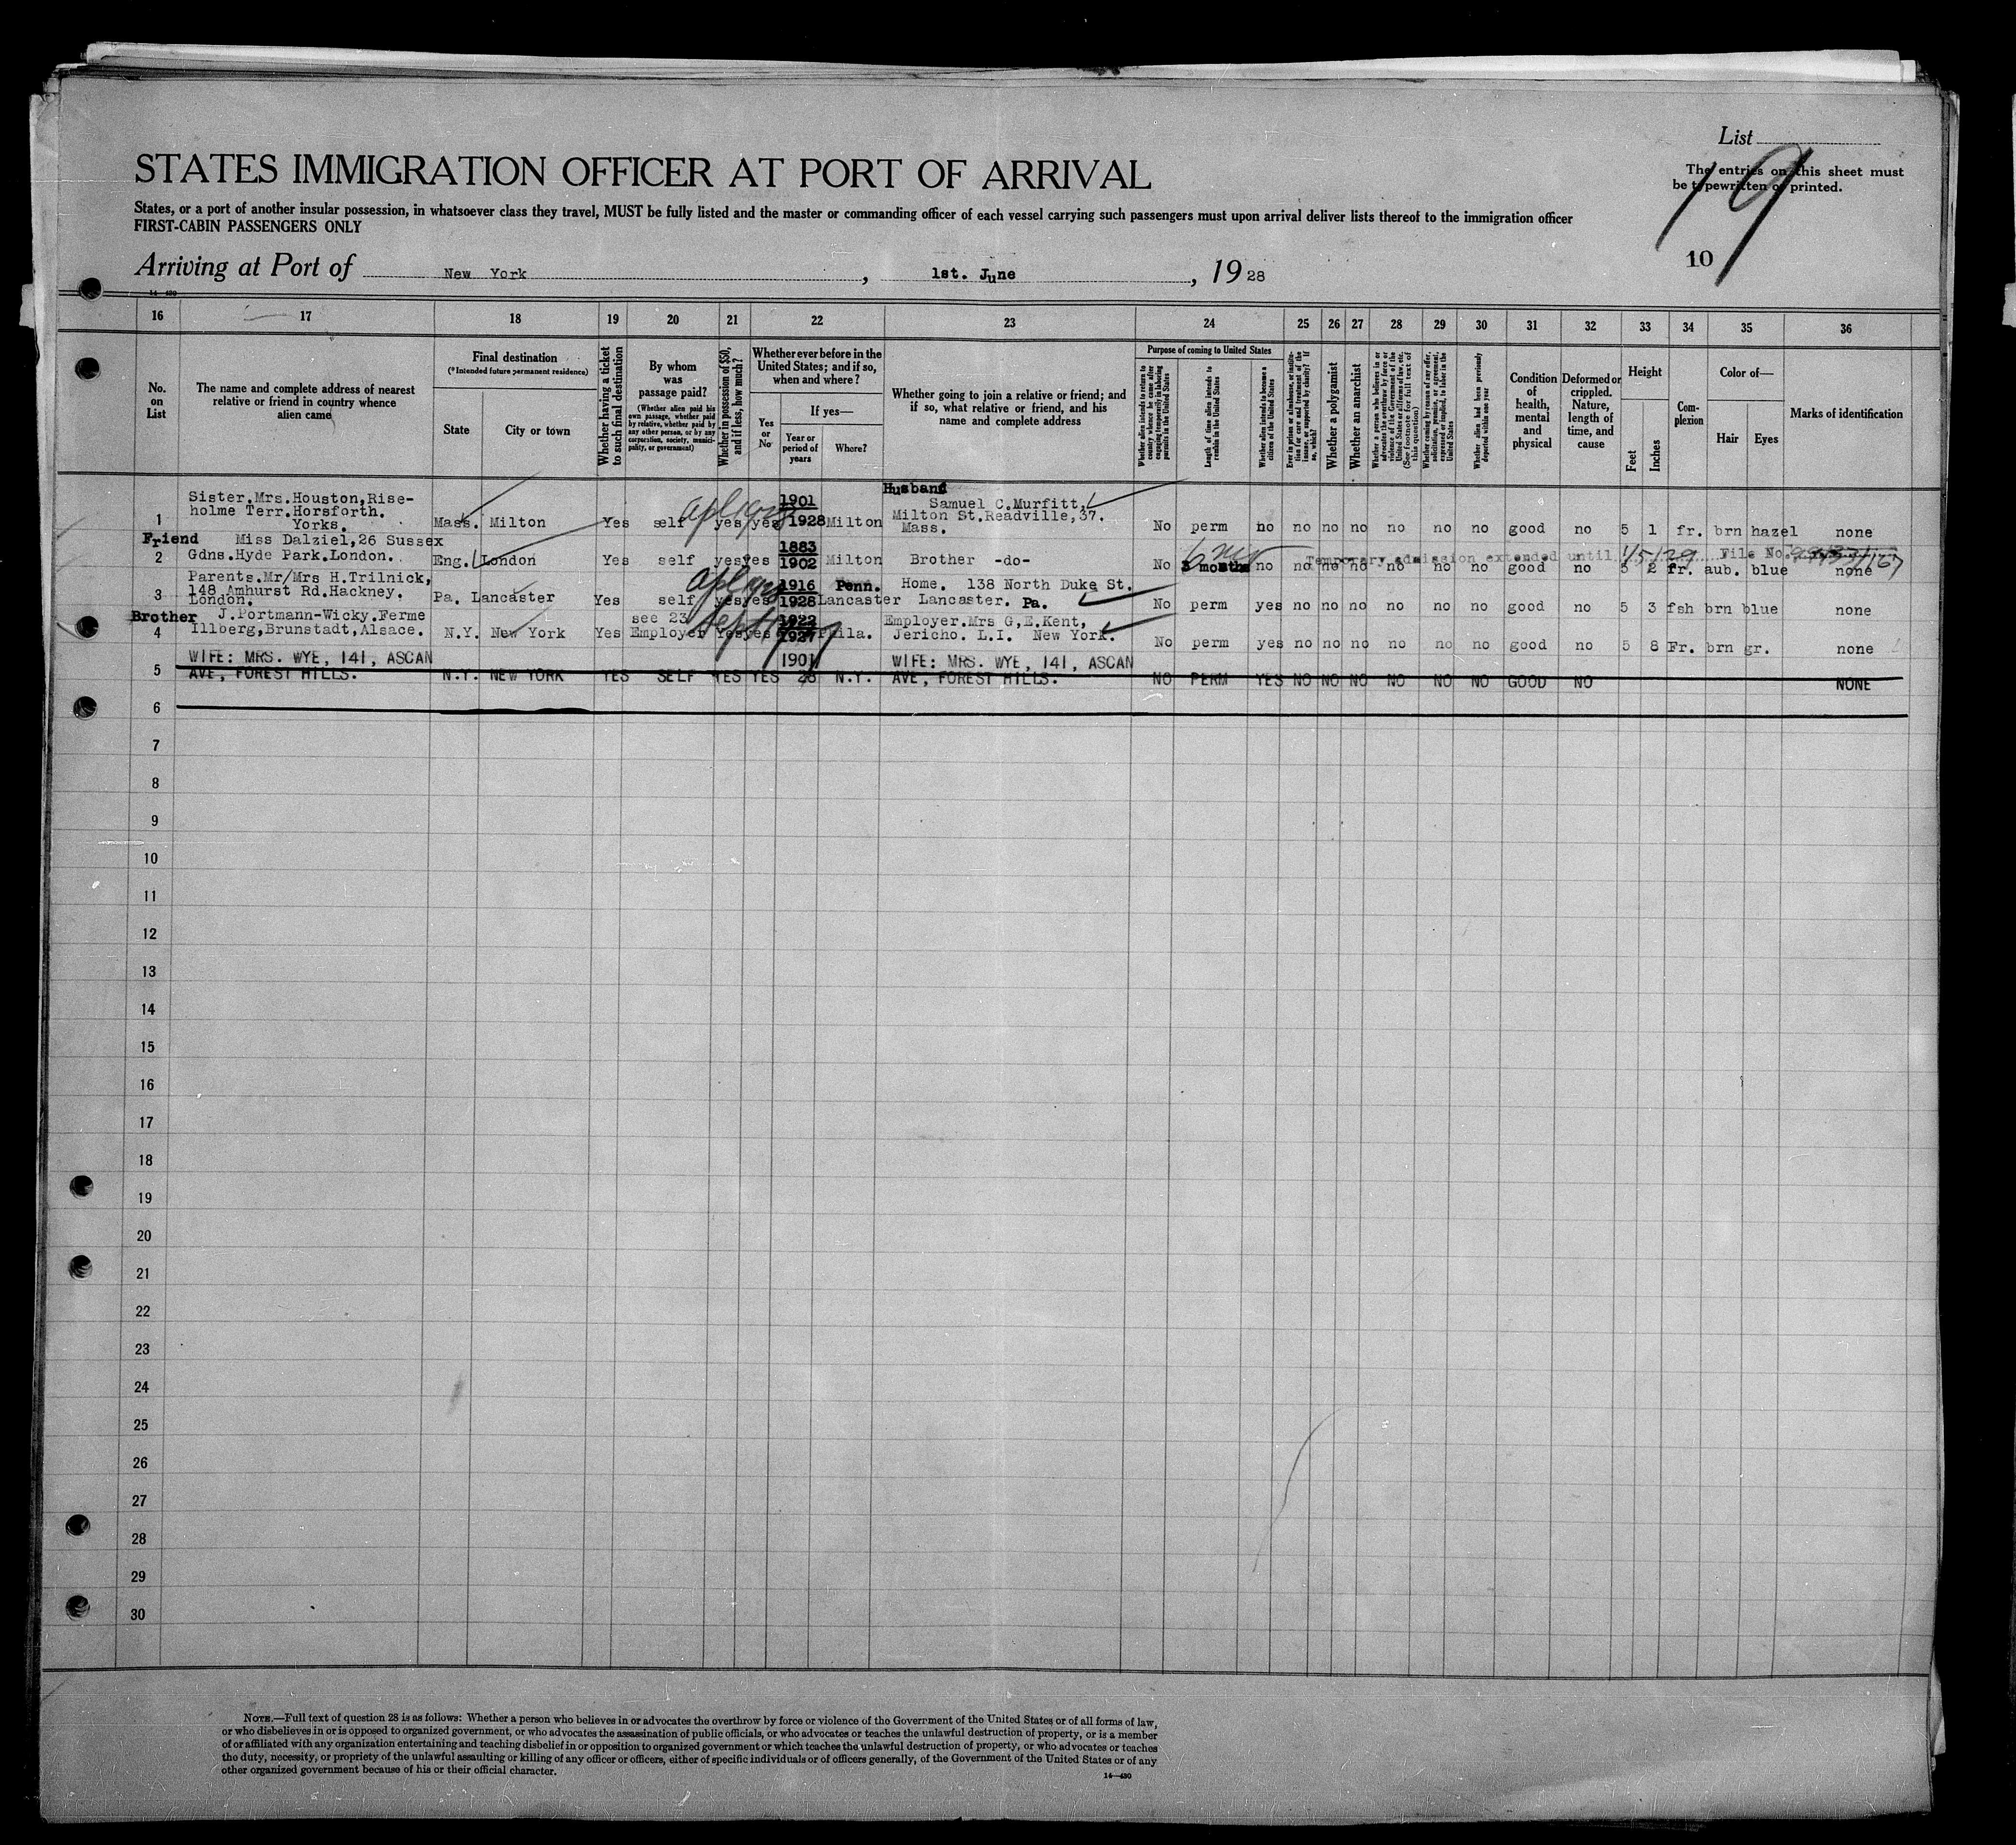 List
The entries on this sheet must
be typewritten or printed.
19
10
STATES IMMIGRATION OFFICER AT PORT OF ARRIVAL
States, or a port of another insular possession, in whatsoever class they travel, MUST be fully listed and the master or commanding officer of each vessel carrying such passengers must upon arrival deliver lists thereof to the immigration officer
FIRST-CABIN PASSENGERS ONLY
Arriving at Port of New York, 1st. June, 1928
14—430
16 17 18 19 20 21 22 23 24 25 26 27 28 29 30 31 32 33 34 35 36
No. on List
The name and complete address of nearest relative or friend in country whence alien came
Final destination
(*Intended future permanent residence)
State
City or town
Whether having a ticket to such final destination
By whom was passage paid?
(Whether alien paid his own passage, whether paid by relative, whether paid by any other person, or by any corporation, society, municipality, or government)
Whether in possession of $50, and if less, how much?
Whether ever before in the United States; and if so, when and where?
Yes or No
If yes—
Year or period of years
Where?
Whether going to join a relative or friend; and if so, what relative or friend, and his name and complete address
Purpose of coming to United States
Whether alien intends to return to country whence he came after engaging temporarily in laboring pursuits in the United States
Length of time alien intends to remain in the United States
Whether alien intends to become a citizen of the United States
Ever in prison or almshouse, or institution for care and treatment of the insane, or supported by charity? If so, which?
Whether a polygamist
Whether an anarchist
Whether a person who believes in or advocates the overthrow by force or violence of the Government of the United States or all forms of law, etc. (See footnote for full text of this question)
Whether coming by reason of any offer, solicitation, promise, or agreement, expressed or implied, to labor in the United States
Whether alien had been previously deported within one year
Condition of health, mental and physical
Deformed or crippled. Nature, length of time, and cause
Height
Feet
Inches
Complexion
Color of—
Hair
Eyes
Marks of identification
1 Sister.Mrs.Houston,Riseholme Terr.Horsforth. Yorks. Mass. Milton Yes self yes yes 1901 1928 Milton Husband Samuel C.Murfitt, Milton St.Readville,37. Mass. No perm no no no no no no no good no 5 1 fr. brn hazel none
2 Friend Miss Dalziel,26 Sussex Gdns.Hyde Park.London. Eng. London Yes self yes yes 1883 1902 Milton Brother -do- No 6 mo 3 months no no no no no no no good no 5 2 fr. aub. blue none
Temporary admission extended until 1/5/29 File No.
3 Parents.Mr/Mrs H.Trilnick, 148 Amhurst Rd.Hackney. London. Pa. Lancaster Yes self yes yes 1916 1928 Penn. Lancaster Home. 138 North Duke St. Lancaster. Pa. No perm yes no no no no no no good no 5 3 fsh brn blue none
4 Brother J.Portmann-Wicky.Ferme Illberg,Brunstadt,Alsace. N.Y. New York Yes see 23 Employer Yes yes 1922 1927 Phila. Employer.Mrs G,E.Kent, Jericho. L.I. New York. No perm yes no no no no no no good no 5 8 Fr. brn gr. none
5 WIFE: MRS. WYE, 141, ASCAN AVE, FOREST HILLS. N.Y. NEW YORK YES SELF YES YES 1901 28 N.Y. WIFE: MRS. WYE, 141, ASCAN AVE, FOREST HILLS. NO PERM YES NO NO NO NO NO NO GOOD NO NONE
6
7
8
9
10
11
12
13
14
15
16
17
18
19
20
21
22
23
24
25
26
27
28
29
30
NOTE.—Full text of question 28 is as follows: Whether a person who believes in or advocates the overthrow by force or violence of the Government of the United States or of all forms of law,
or who disbelieves in or is opposed to organized government, or who advocates the assassination of public officials, or who advocates or teaches the unlawful destruction of property, or is a member
of or affiliated with any organization entertaining and teaching disbelief in or opposition to organized government or which teaches the unlawful destruction of property, or who advocates or teaches
the duty, necessity, or propriety of the unlawful assaulting or killing of any officer or officers, either of specific individuals or of officers generally, of the Government of the United States or of any
other organized government because of his or their official character.
14—430